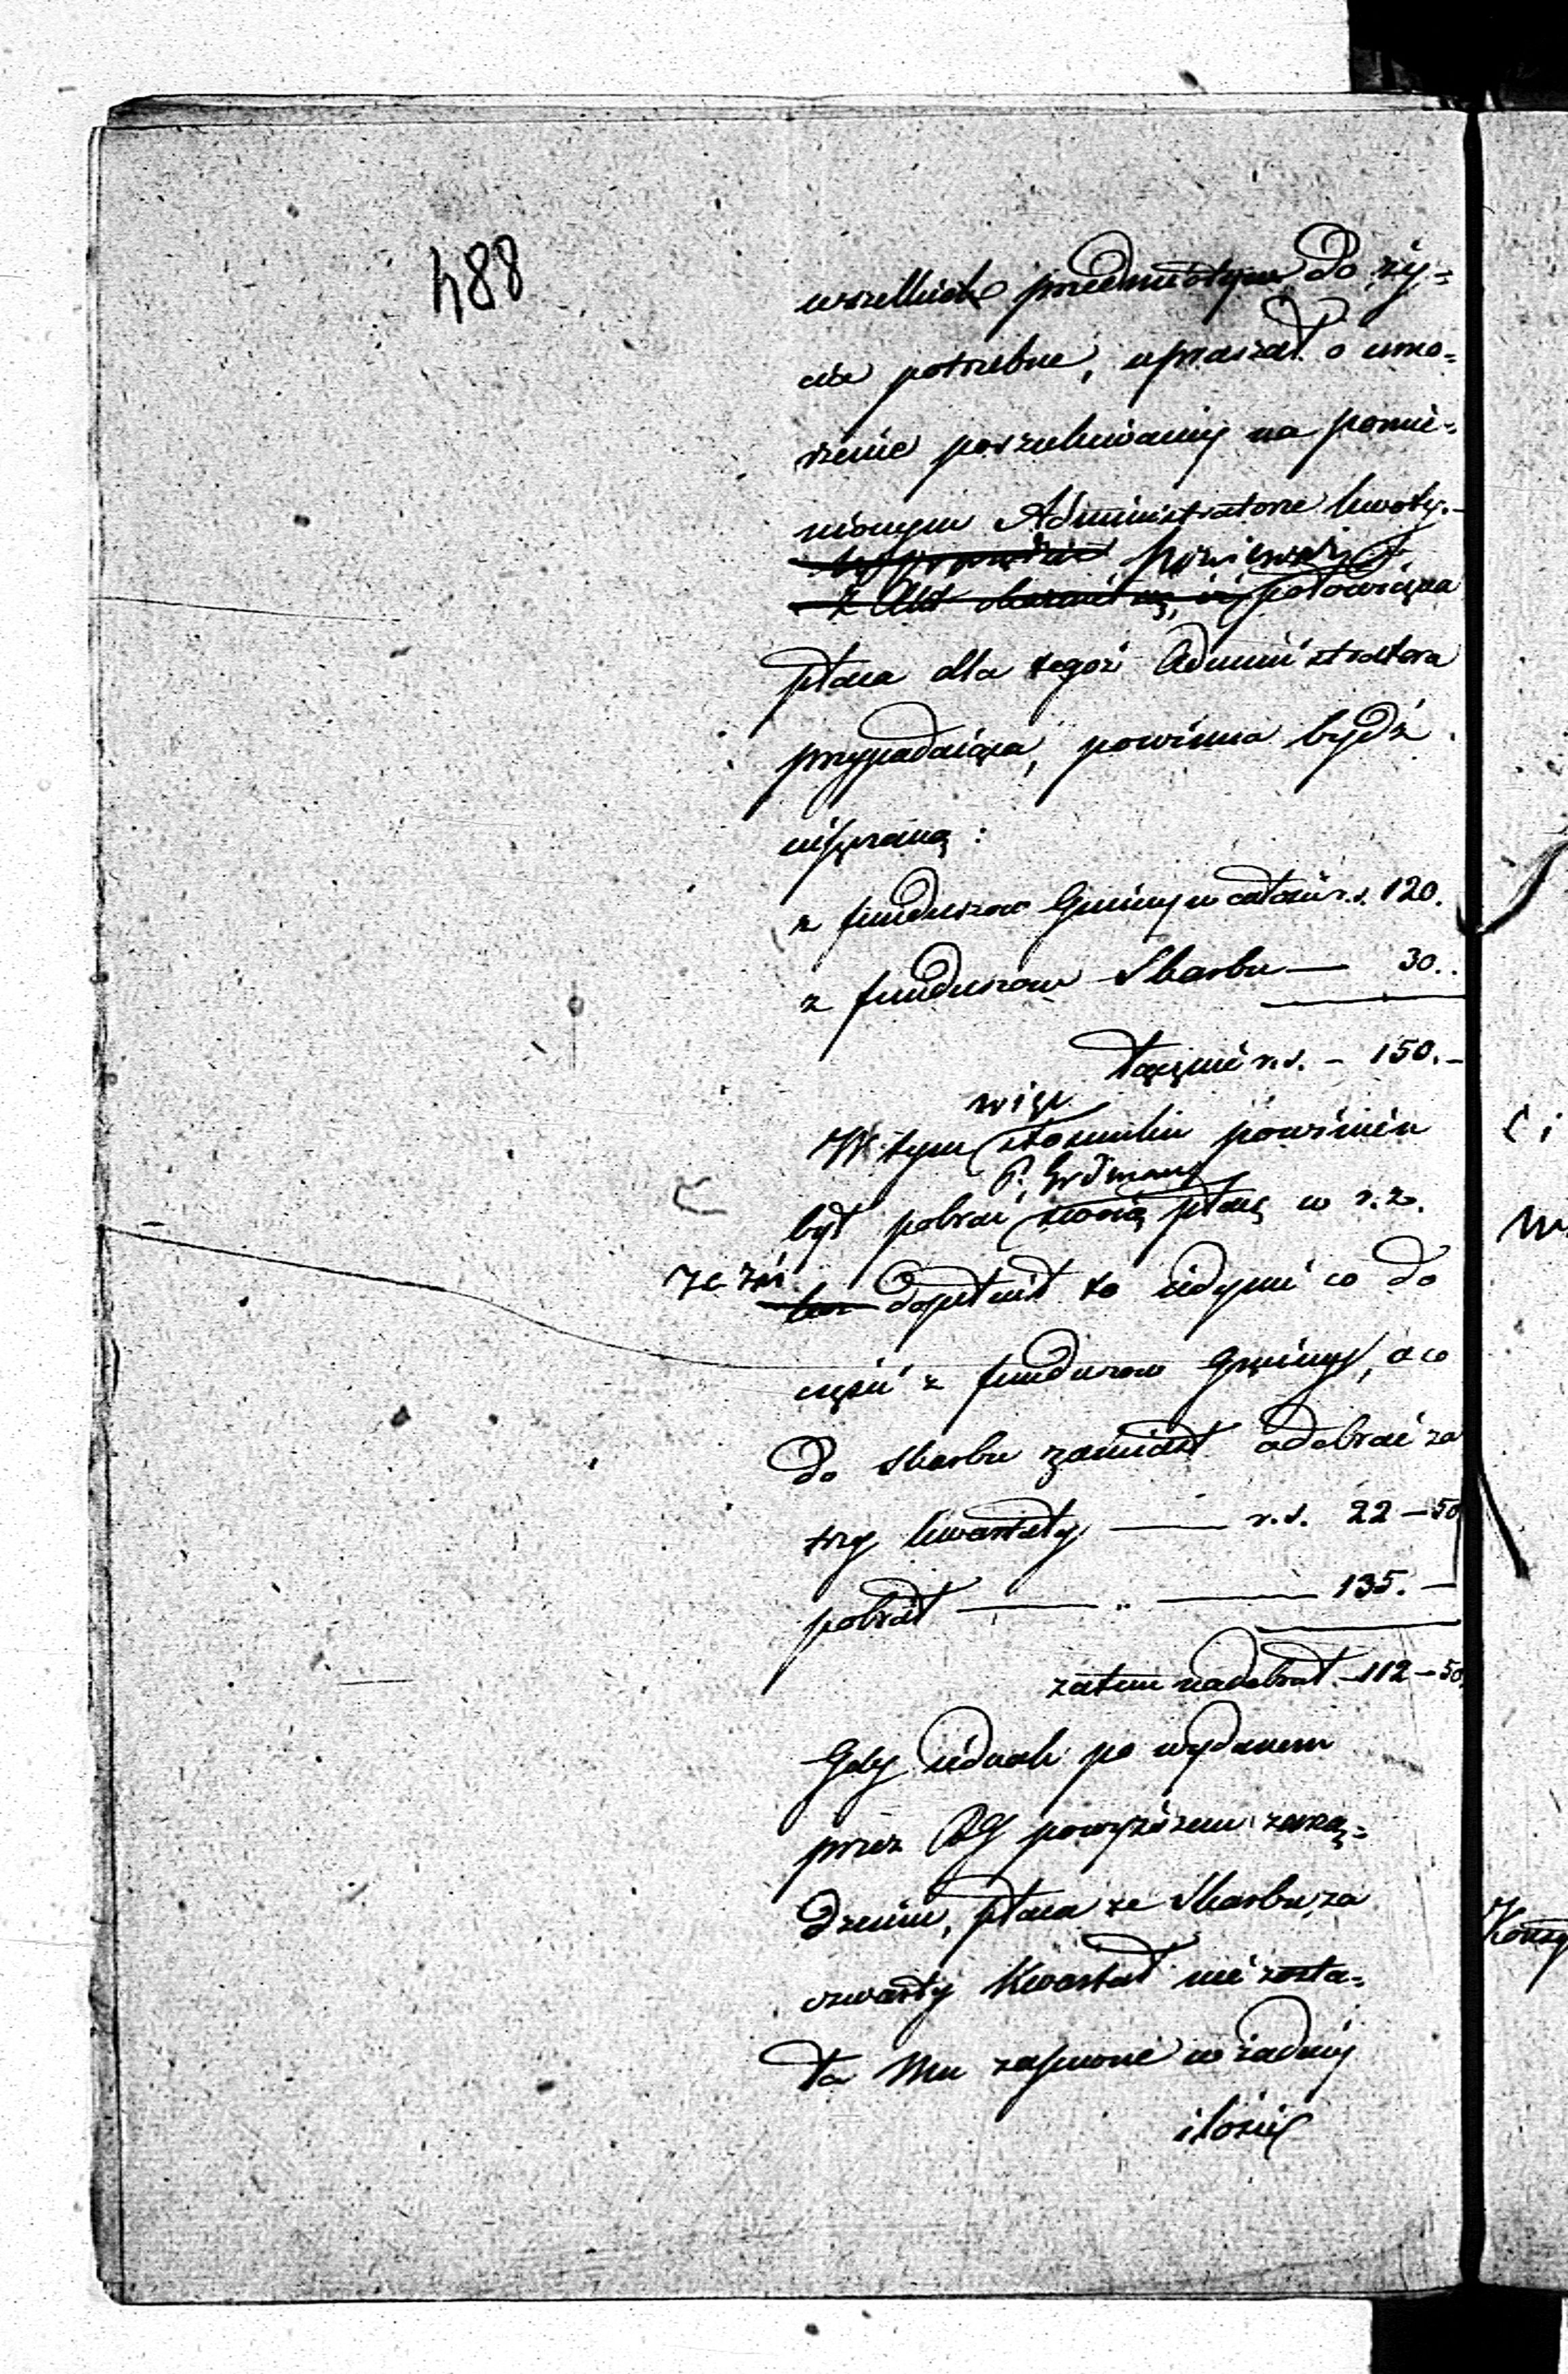 488
wszelkich przedmiotów do ży-
cia potrzebne, upraszał o umo-
rzenie poszukiwany na pomie-
nionym Administratorze kwoty.
Ponieważ
z Akt okazuie się, iż połowiczna
płaca dla tegoż Administratora
przypadaiąca, powinna bydź
uiszczaną:
z funduszow Gminy w całości r.s. 120.
z funduszow Skarbu — 30.
łącznie r.s. - 150.-
więc
W tym stosunku powinien
P. Erdman
był pobrać swoią płacę w r.z.
że zaś
dopełnił to iedynie co do
części z funduszow Gminy, a co
do Skarbu zamiast odebrać za
trzy kwartały — r.s. 22 - 50
pobrał — „ — 135. -
zatem nadebrał - 112 - 50.
Gdy iednak po wydanem
przez RG powyższem zarzą-
dzeniu, płaca ze Skarbu za
czwarty Kwartał nie zosta-
ła Mu zapewne w żadnéy
ilości